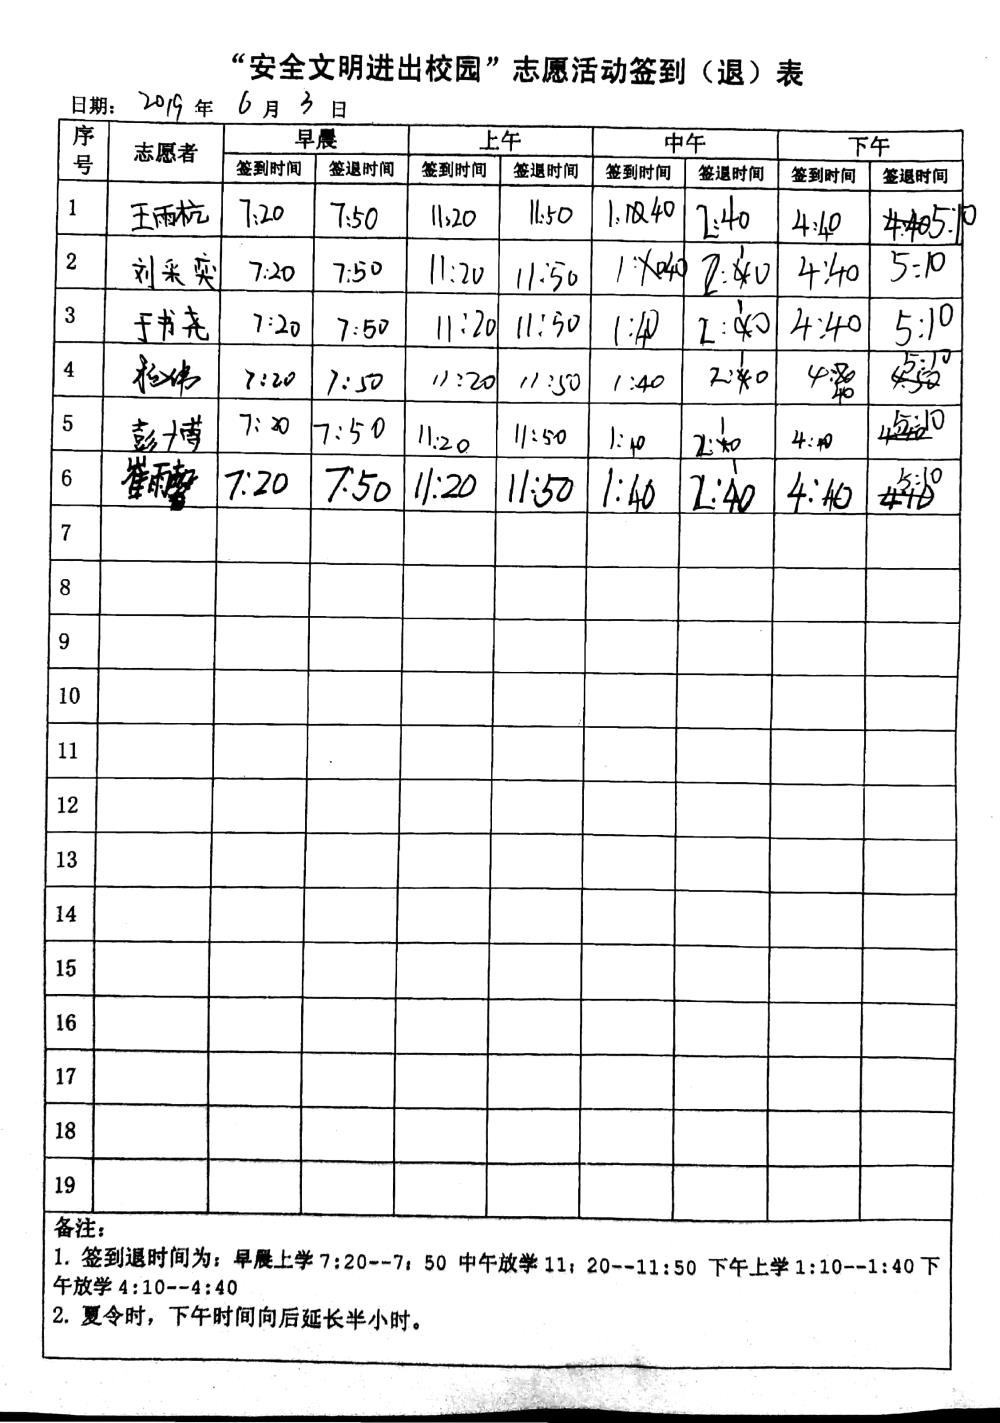 “安全文明进出校园”志愿活动签到（退）表
日期： 2019 年 6 月 3 日
序号 志愿者 早晨 上午 中午 下午
签到时间 签退时间 签到时间 签退时间 签到时间 签退时间 签到时间 签退时间
1 王雨杭 7:20 7:50 11:20 11:50 1:40 2:40 4:40 5:10
2 刘采奕 7:20 7:50 11:20 11:50 1:40 2:10 4:40 5:10
3 于书尧 7:20 7:50 11:20 11:50 1:40 2:10 4:40 5:10
4 7:20 7:50 11:20 11:50 1:40 2:10 4:40 5:10
5 彭博 7:20 7:50 11:20 11:50 1:40 2:10 4:40 5:10
6 崔雨馨 7:20 7:50 11:20 11:50 1:40 2:10 4:40 5:10
7
8
9
10
11
12
13
14
15
16
17
18
19
备注：
1. 签到退时间为：早晨上学 7:20--7：50 中午放学 11：20--11:50 下午上学 1:10--1:40 下
午放学 4:10--4:40
2. 夏令时，下午时间向后延长半小时。